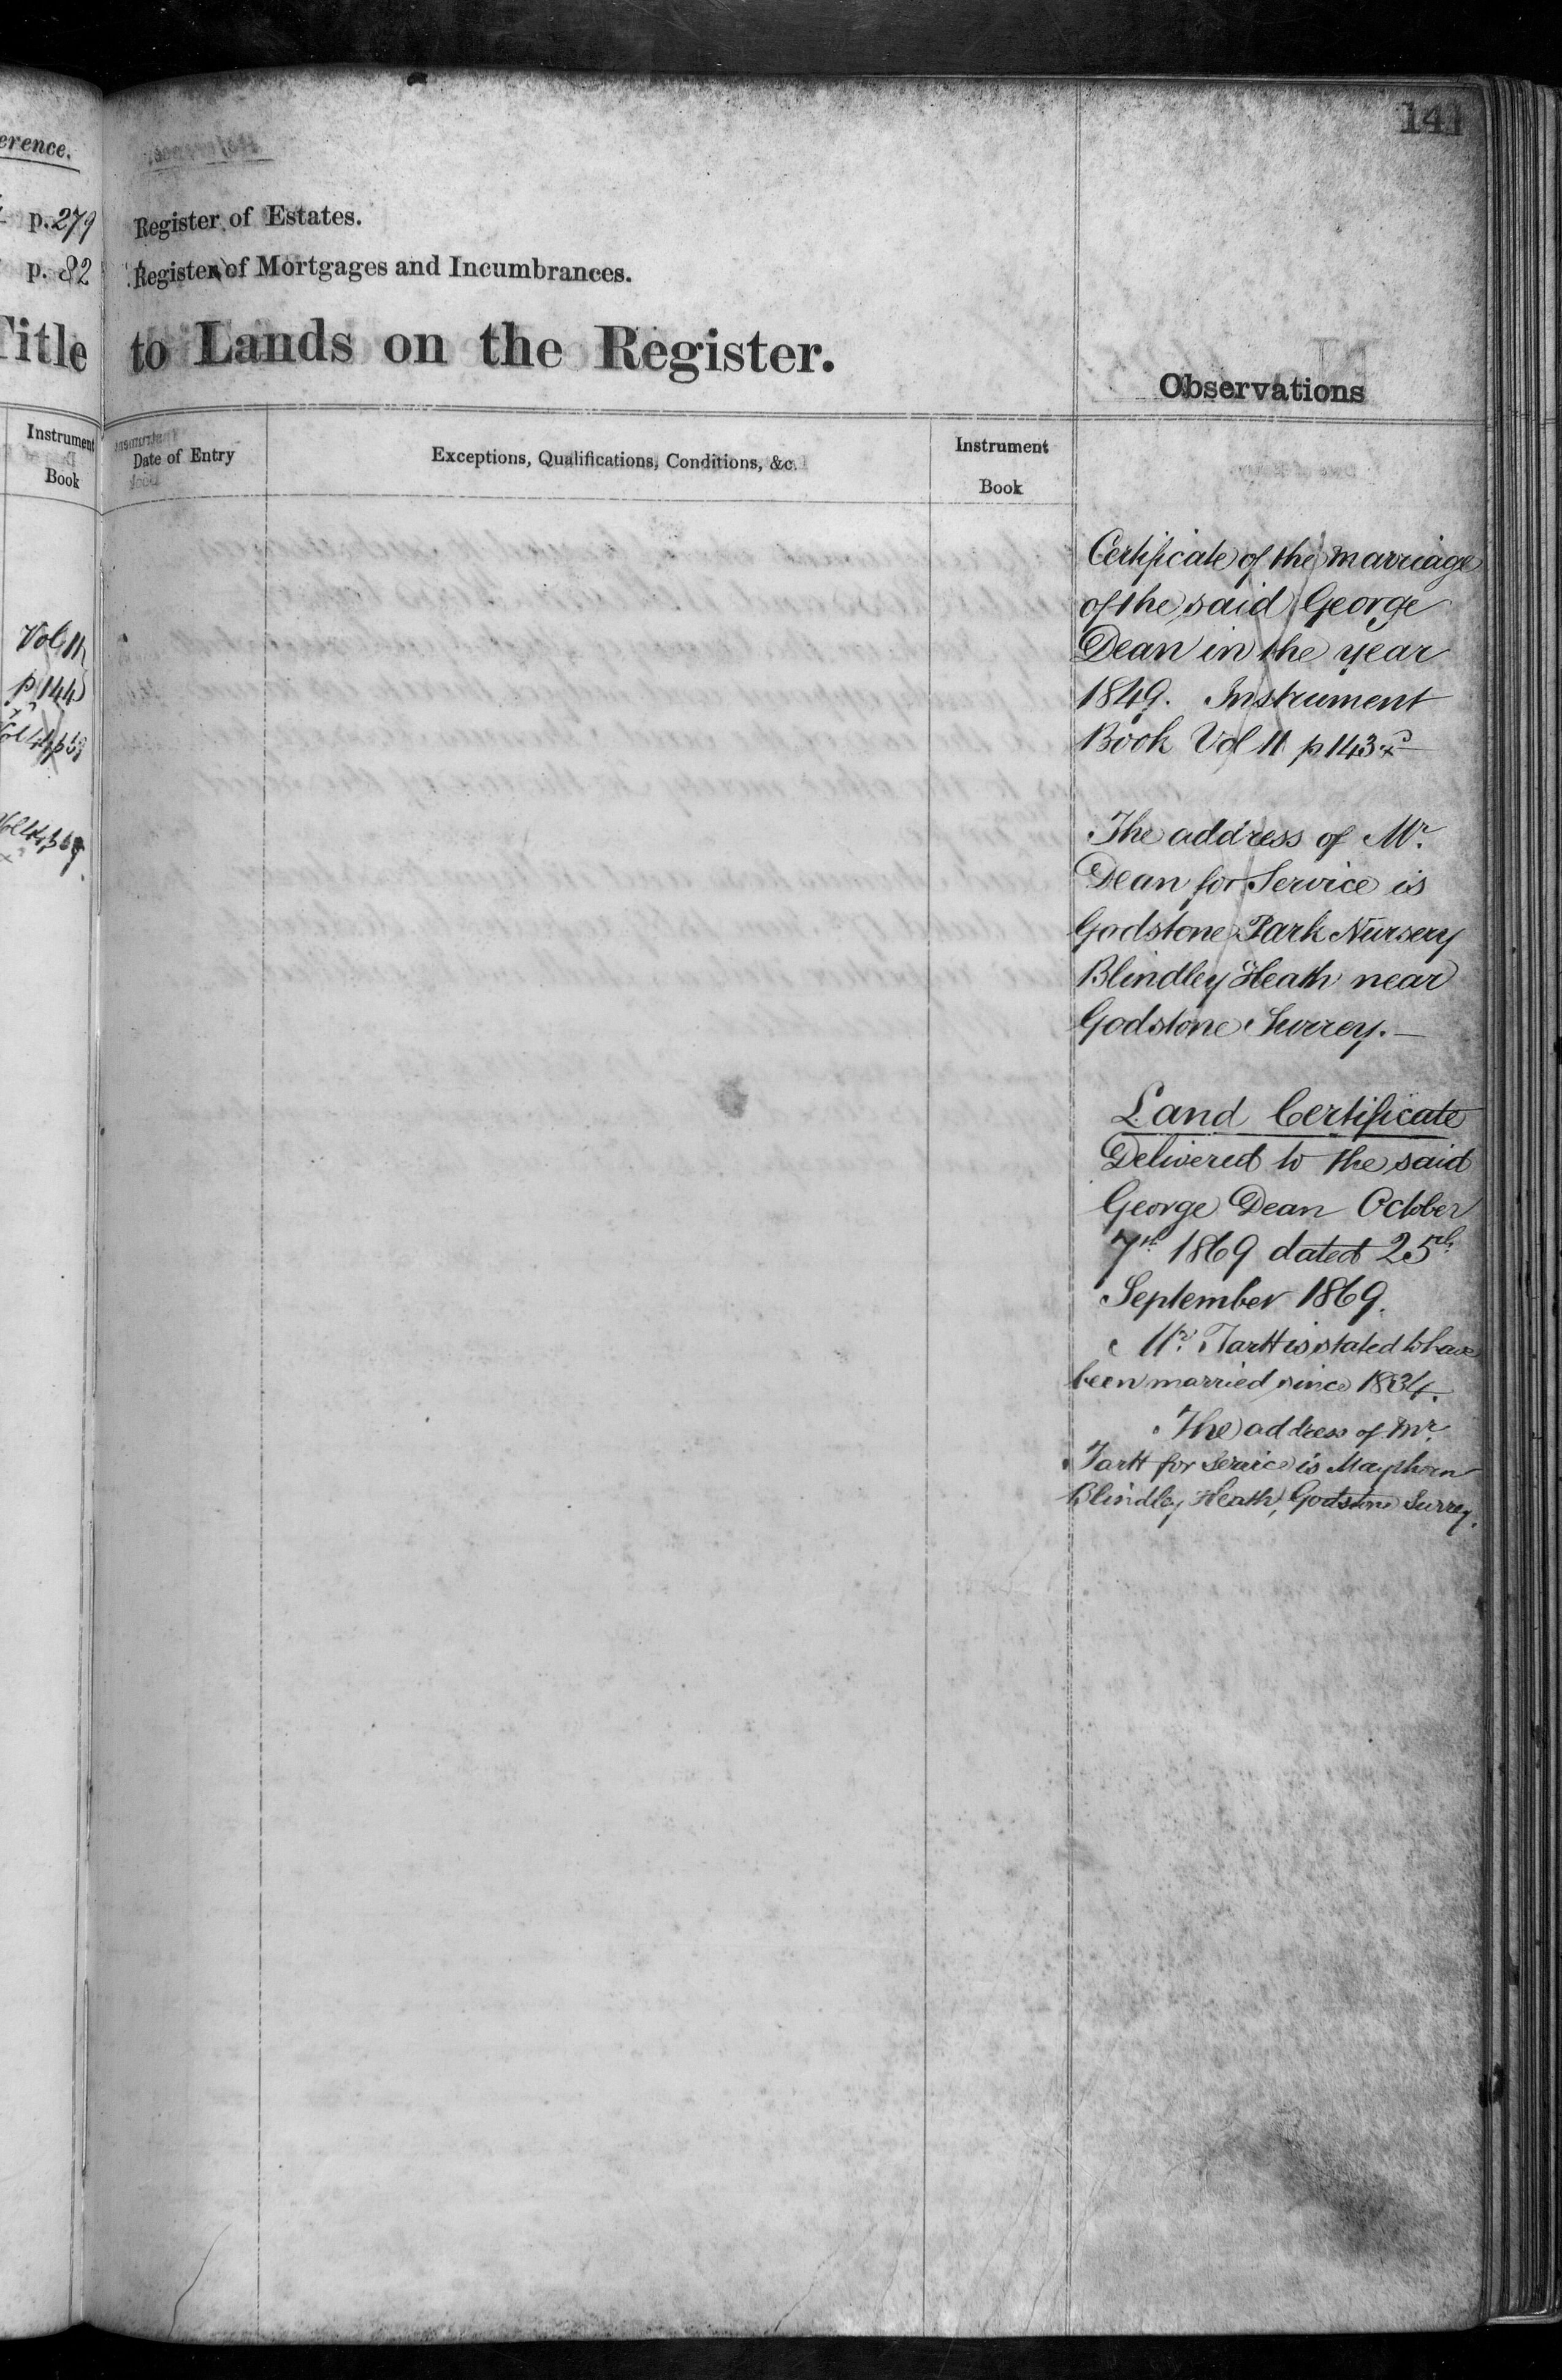 141
erence.
p. 279
p. 82
Title
Instrument
Book
Vol 11
p 144
Register of Estates.
Register of Mortgages and Incumbrances.
to Lands on the Register.
Observations
Date of Entry
Exceptions, Qualifications, Conditions, &c.
Instrument
Book
Certificate of the marriage
of the said George
Dean in the year
1849. Instrument
Book Vol 11 p 143
The address of Mr.
Dean for Service is
Godstone Park Nursery
Blindley Heath near
Godstone Surrey.—
Land Certificate
Delivered to the said
George Dean October
7th 1869 dated 25th
September 1869.
Mr. Tartt is stated to have
been married since 1834.
The address of Mr.
Tartt for Service is Maythorn
Blindley Heath, Godstone Surrey.